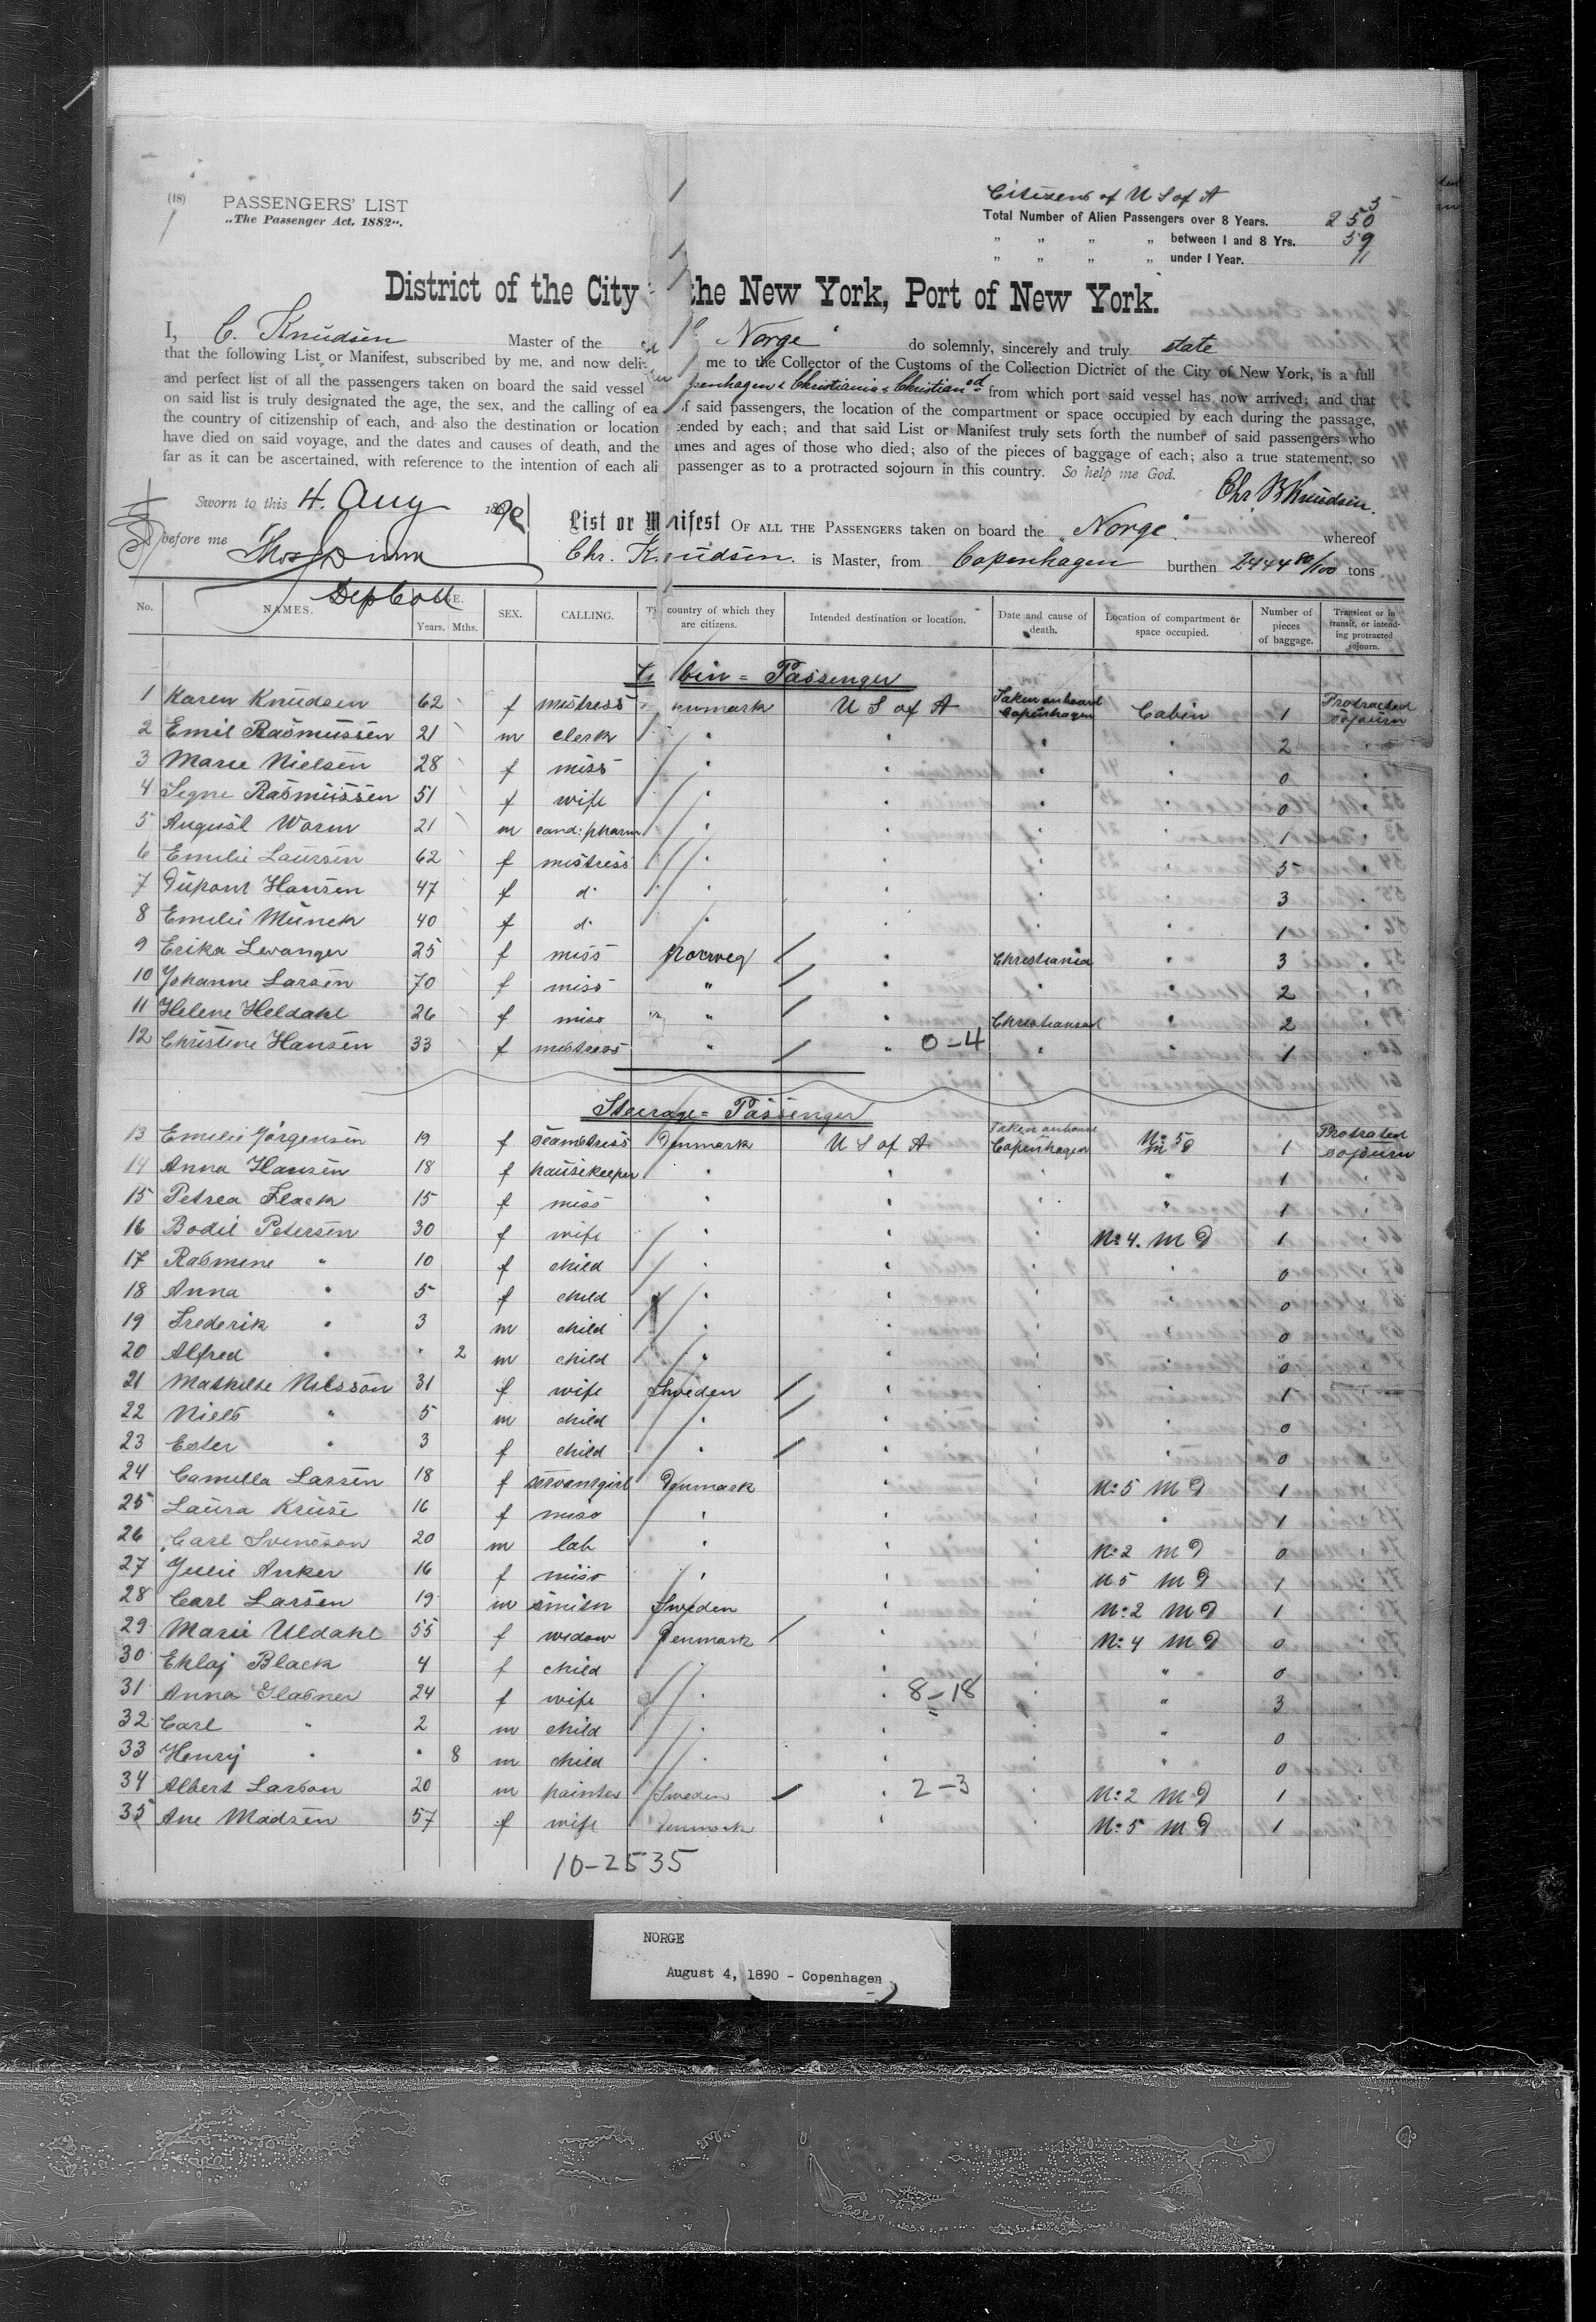 (18) PASSENGERS' LIST
„The Passenger Act, 1882“.
Citizens of U S of A 5
Total Number of Alien Passengers over 8 Years. 250
„ „ „ „ between 1 and 8 Yrs. 59
„ „ „ „ under 1 Year. 11
District of the City the New York, Port of New York.
I, C. Knudsen Master of the Norge do solemnly, sincerely and truly state
that the following List or Manifest, subscribed by me, and now deli me to the Collector of the Customs of the Collection District of the City of New York, is a full
and perfect list of all the passengers taken on board the said vessel penhagen & Christiania & Christiansd from which port said vessel has now arrived; and that
on said list is truly designated the age, the sex, and the calling of ea of said passengers, the location of the compartment or space occupied by each during the passage,
the country of citizenship of each, and also the destination or location tended by each; and that said List or Manifest truly sets forth the number of said passengers who
have died on said voyage, and the dates and causes of death, and the ames and ages of those who died; also of the pieces of baggage of each; also a true statement, so
far as it can be ascertained, with reference to the intention of each ali passenger as to a protracted sojourn in this country. So help me God.
Chr B Knudsen.
Sworn to this 4. Aug 1890
before me
Dep Coll
List or Manifest OF ALL THE PASSENGERS taken on board the „Norge“ whereof
Chr. Knudsen. is Master, from Copenhagen burthen 2444 80/100 tons
No. NAMES. Years. Mths. SEX. CALLING. country of which they are citizens. Intended destination or location. Date and cause of death. Location of compartment or space occupied. Number of pieces of baggage. Transient or in transit, or intending protracted sojourn.
bin = Passenger
1 Karen Knudsen 62 f mistress nmark U S of A Taken onboard Copenhagen Cabin 1 Protracted sojourn
2 Emil Rasmussen 21 m clerk " " " " 2
3 Marie Nielsen 28 f miss " " " " 0
4 Segne Rasmussen 51 f wife " " " " 0
5 August Worm 21 m cand: pharm " " " " 1
6 Emilie Laursen 62 f mistress " " " " 5
7 Dupont Hansen 47 f d. " " " " 3
8 Emilie Munck 40 f d. " " " " 1
9 Erika Levanger 25 f miss Norweg " Christiania " 3
10 Johanne Larsen 70 f miss " " " " 2
11 Helene Heldahl 26 f miss " " Christiansd " 2
12 Christine Hansen 33 f mistress " " 0-4 " " 1
Steerage = Passenger
13 Emilie Jörgensen 19 f seamstress Denmark U S of A Taken onboard Copenhagen No 5 m D 1 Protrated sojourn
14 Anna Hansen 18 f hausekeeper " " " " 1
15 Petrea Flack 15 f miss " " " " 1
16 Bodil Petersen 30 f wife " " " No 4. m D 1
17 Rasmine " 10 f child " " " " 0
18 Anna " 5 f child " " " " 0
19 Frederik " 3 m child " " " " 0
20 Alfred " " 2 m child " " " " 0
21 Mathilde Nilsson 31 f wife Sweden " " " 1
22 Niels " 5 m child " " " " 0
23 Ester " 3 f child " " " " 0
24 Camilla Larsen 18 f servantgirl Denmark " " No 5 m D 1
25 Laura Kruse 16 f miss " " " " 1
26 Carl Svensson 20 m lab " " " No 2 m D 0
27 Julie Anker 16 f miss " " " N 5 m D 1
28 Carl Larsen 19 m smith Sweden " " No 2 m D 1
29 Marie Uldahl 55 f widow Denmark " " No 4 m D 0
30 Black 4 f child " " " " 0
31 Anna Glasner 24 f wife " " 8-18 " " 3
32 Carl " 2 m child " " " " 0
33 Henry " " 8 m child " " " " 0
34 Albert Larson 20 m painter Sweden " 2-3 " No 2 m D 1
35 Ane Madsen 57 f wife Denmark " " No 5 m D 1
10-2535
NORGE
August 4, 1890 - Copenhagen